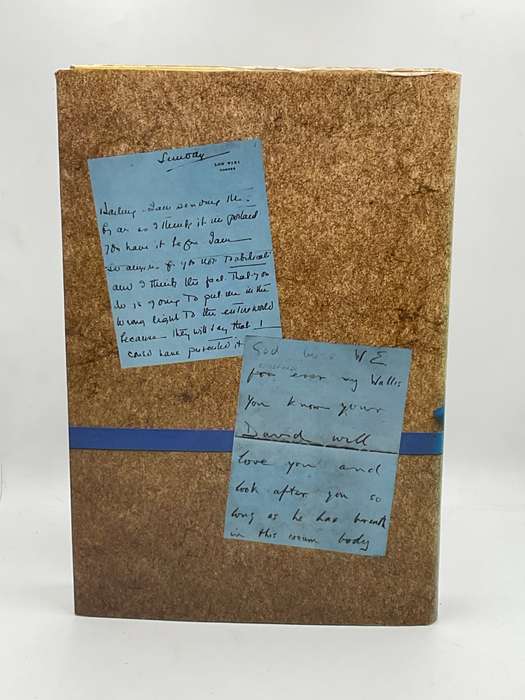 Sunday
LOU VIEI
CANNES
Darling – I am sending this
by air as I think it important
you have it before. I am
so anxious for you not to abdicate
and I think the fact that you
do is going to put me in the
wrong light to the entire world
because they will say that I
could have prevented it
God bless WE
for ever my Wallis
You know your
David will
love you and
look after you so
long as he has breath
in this eanum body